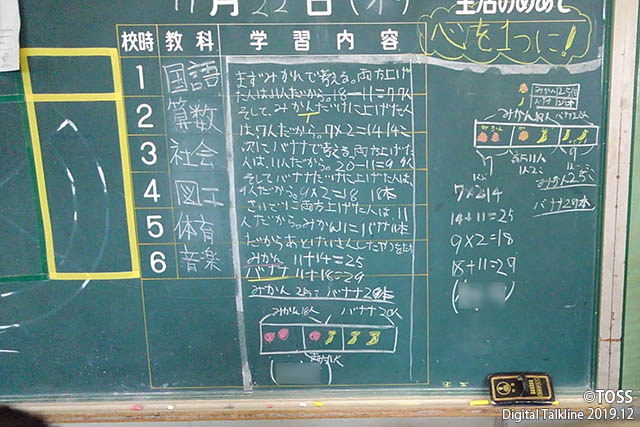 11月22日(木)
生活のめあて
心を1つに!
校時 教科 学習内容
1 国語
2 算数
3 社会
4 図工
5 体育
6 音楽
まずみかんで考える。両方上げ
た人は11人だから。18-11=7 7人
そして、みかんだけに上げた人
は、7人だから。7×2=14 14こ
次にバナナで考える。両方上げた
人は、11人だから。20-11=9 9人
そしてバナナだけで上げた人は、
9人だから。9×2=18 18本
さいごに両方上げた人は、11
人だから。みかん11こバナナ11本
だからあとけいさんしたやつをたす
みかん 11+14=25
バナナ 11+18=29
みかん 25こ バナナ29本
みかん18人 バナナ20人
みかん18人 バナナ20人
7 9
両方11人
みかん25こ
バナナ29本
7×2=14
14+11=25
9×2=18
18+11=29
©TOSS
Digital Talkline 2019.12